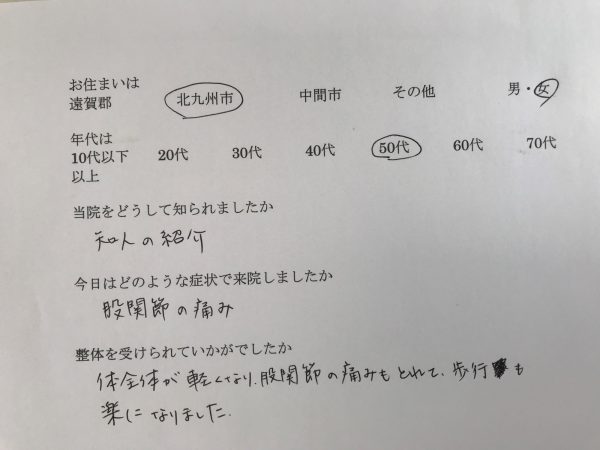 お住まいは
遠賀郡 北九州市 中間市 その他 男・女
年代は
10代以下 20代 30代 40代 50代 60代 70代
以上
当院をどうして知られましたか
知人の紹介
今日はどのような症状で来院しましたか
股関節の痛み
整体を受けられていかがでしたか
体全体が軽くなり、股関節の痛みもとれて、歩行も
楽になりました。